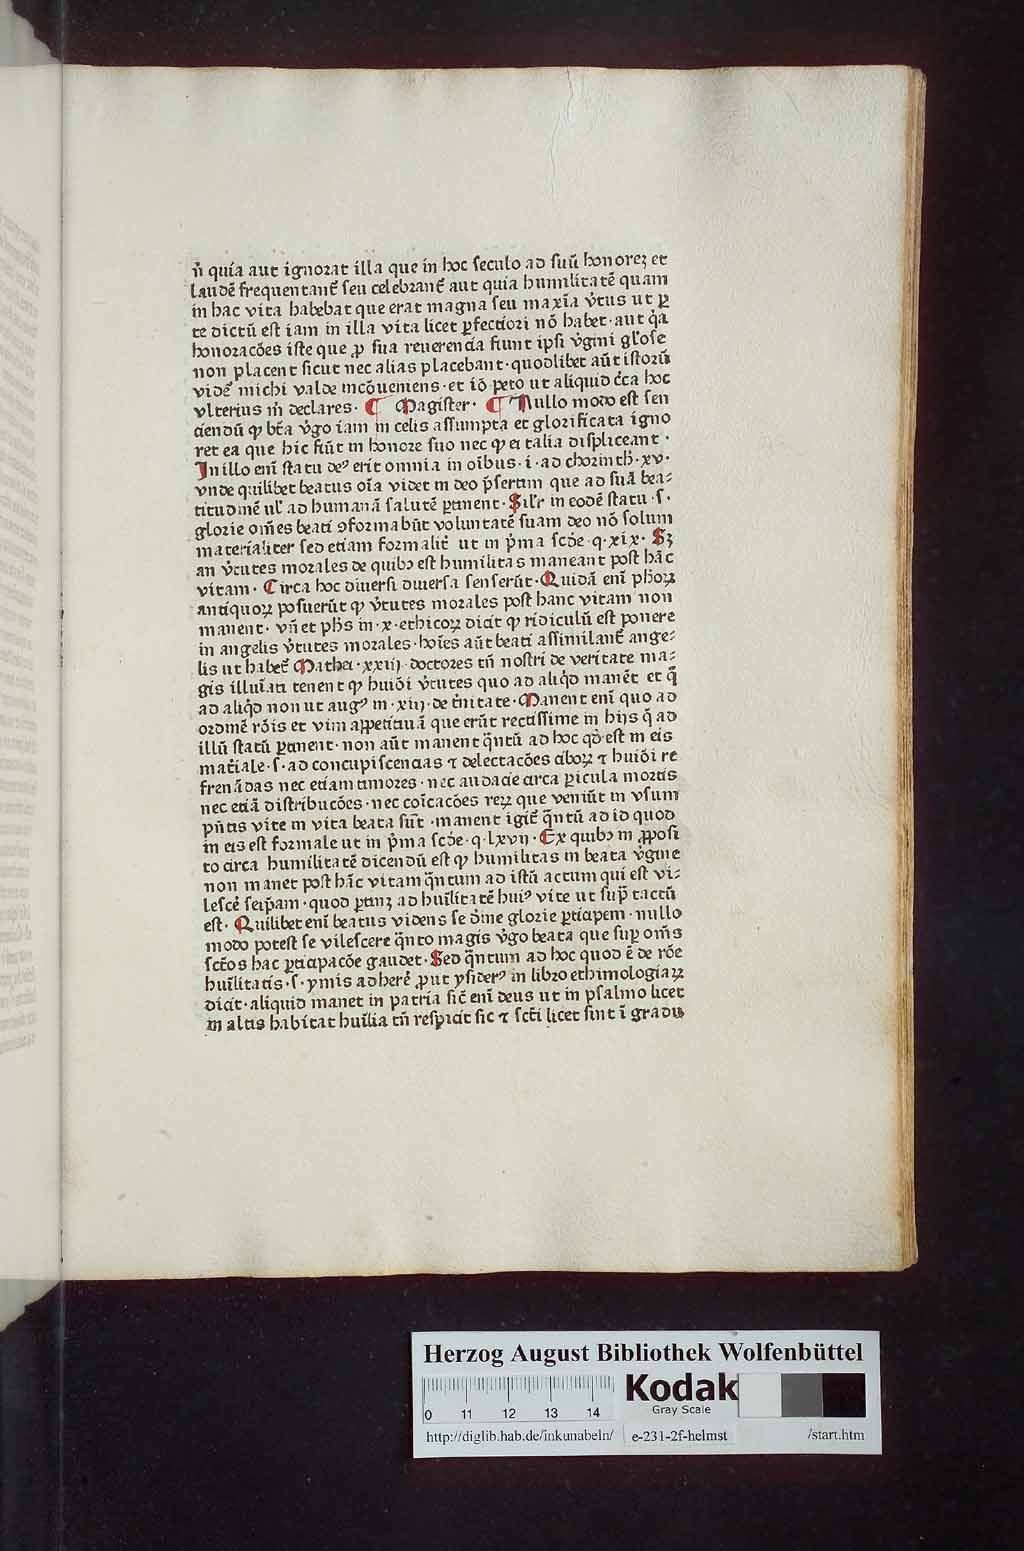 n̄ quia aut ignorat illa que in hoc seculo ad suū honorez et
laudē frequentant᷑ seu celebrant᷑ aut quia humilitatē quam
in hac vita habebat que erat magna seu maxīa v̓tus ut ꝑ
te dictū est iam in illa vita licet ꝑfectiori nō habet · aut q̇a
honoracōes iste que ꝓ sua reuerencia fiunt ipsi v̓gini gl̓ose
non placent sicut nec alias placebant · quodlibet aūt istorū
videt᷑ michi valde incōueniens · et iō peto ut aliquid c̓ca hoc
vlterius m̄ declares · ¶ Magister · ¶ Nullo modo est sen
ciendū ꝙ bt̄a v̓go iam in celis assumpta et glorificata igno
ret ea que hic fiūt in honore suo nec ꝙ ei talia displiceant ·
In illo enī statu deꝰ erit omnia in oībus · i · ad chorinth · xv ·
vnde quilibet beatus oīa videt in deo p̄sertim que ad suā bea⸗
titudinē ul̓ ad humanā salutē ꝑtinent · Sil̓r in eodē statu · s ·
glorie om̄es beati ꝯformabūt voluntatē suam deo nō solum
materialiter sed etiam formalit᷑ ut in p̓ma scd̄e · q · xix · Sꝫ
an v̓tutes morales de quibꝫ est humilitas maneant post hāc
vitam · Circa hoc diuersi diuersa senserūt · Quidā enī ph̄oꝝ
antiquoꝝ posuerūt ꝙ v̓tutes morales post hanc vitam non
manent · vn̄ et ph̄s in · x · ethicoꝝ dicit ꝙ ridiculū est ponere
in angelis v̓tutes morales · hoīes aūt beati assimilant᷑ ange⸗
lis ut habet᷑ Mathei · xxiij · doctores tn̄ nostri de veritate ma⸗
gis illuīati tenent ꝙ huiōi v̓tutes quo ad aliq̇d manēt et q̄
ad aliq̇d non ut augꝰ in · xiij · de t̓nitate · Manent enī quo ad
ordinē rōis et vim appetitiuā que erūt rectissime in hijs q̄ ad
illū statū ꝑtinent · non aūt manent q̄ntū ad hoc qd̓ est in eis
mat̓iale · s · ad concupiscencias ⁊ delectacōes ciboꝝ ⁊ huiōi re
frenādas nec etiam timores · nec audacie circa ꝑicula mortis
nec etiā distribucōes · nec coīcacōes reꝝ que veniūt in vsum
pn̄tis vite in vita beata sūt · manent igit᷑ q̄ntū ad id quod
in eis est formale ut in p̓ma scd̄e · q · lxvij · Ex quibꝫ in ꝓposi
to circa humilitatē dicendū est ꝙ humilitas in beata v̓gine
non manet post hāc vitam q̄ntum ad istū actum qui est vi⸗
lescē seip̄am · quod ꝑtinꝫ ad huīlitatē huiꝰ vite ut sup̄ tactū
est · Quilibet enī beatus videns se d̓ine glorie ꝑticipem · nullo
modo potest se vilescere q̄nto magis v̓go beata que suꝑ om̄s
sct̄os hac ꝑticipacōe gaudet · Sed q̄ntum ad hoc quod ē de rōe
huīlitatis · s · ymis adherē ꝓut ysiderꝰ in libro ethimologiaꝝ
dicit · aliquid manet in patria sic̄ enī deus ut in psalmo licet
in altis habitat huīlia tn̄ respicit sic ⁊ sct̄i licet sint ī gradu
Herzog August Bibliothek Wolfenbüttel
0 11 12 13 14
Kodak
Gray Scale
http://diglib.hab.de/inkunabeln/ e-231-2f-helmst /start.htm